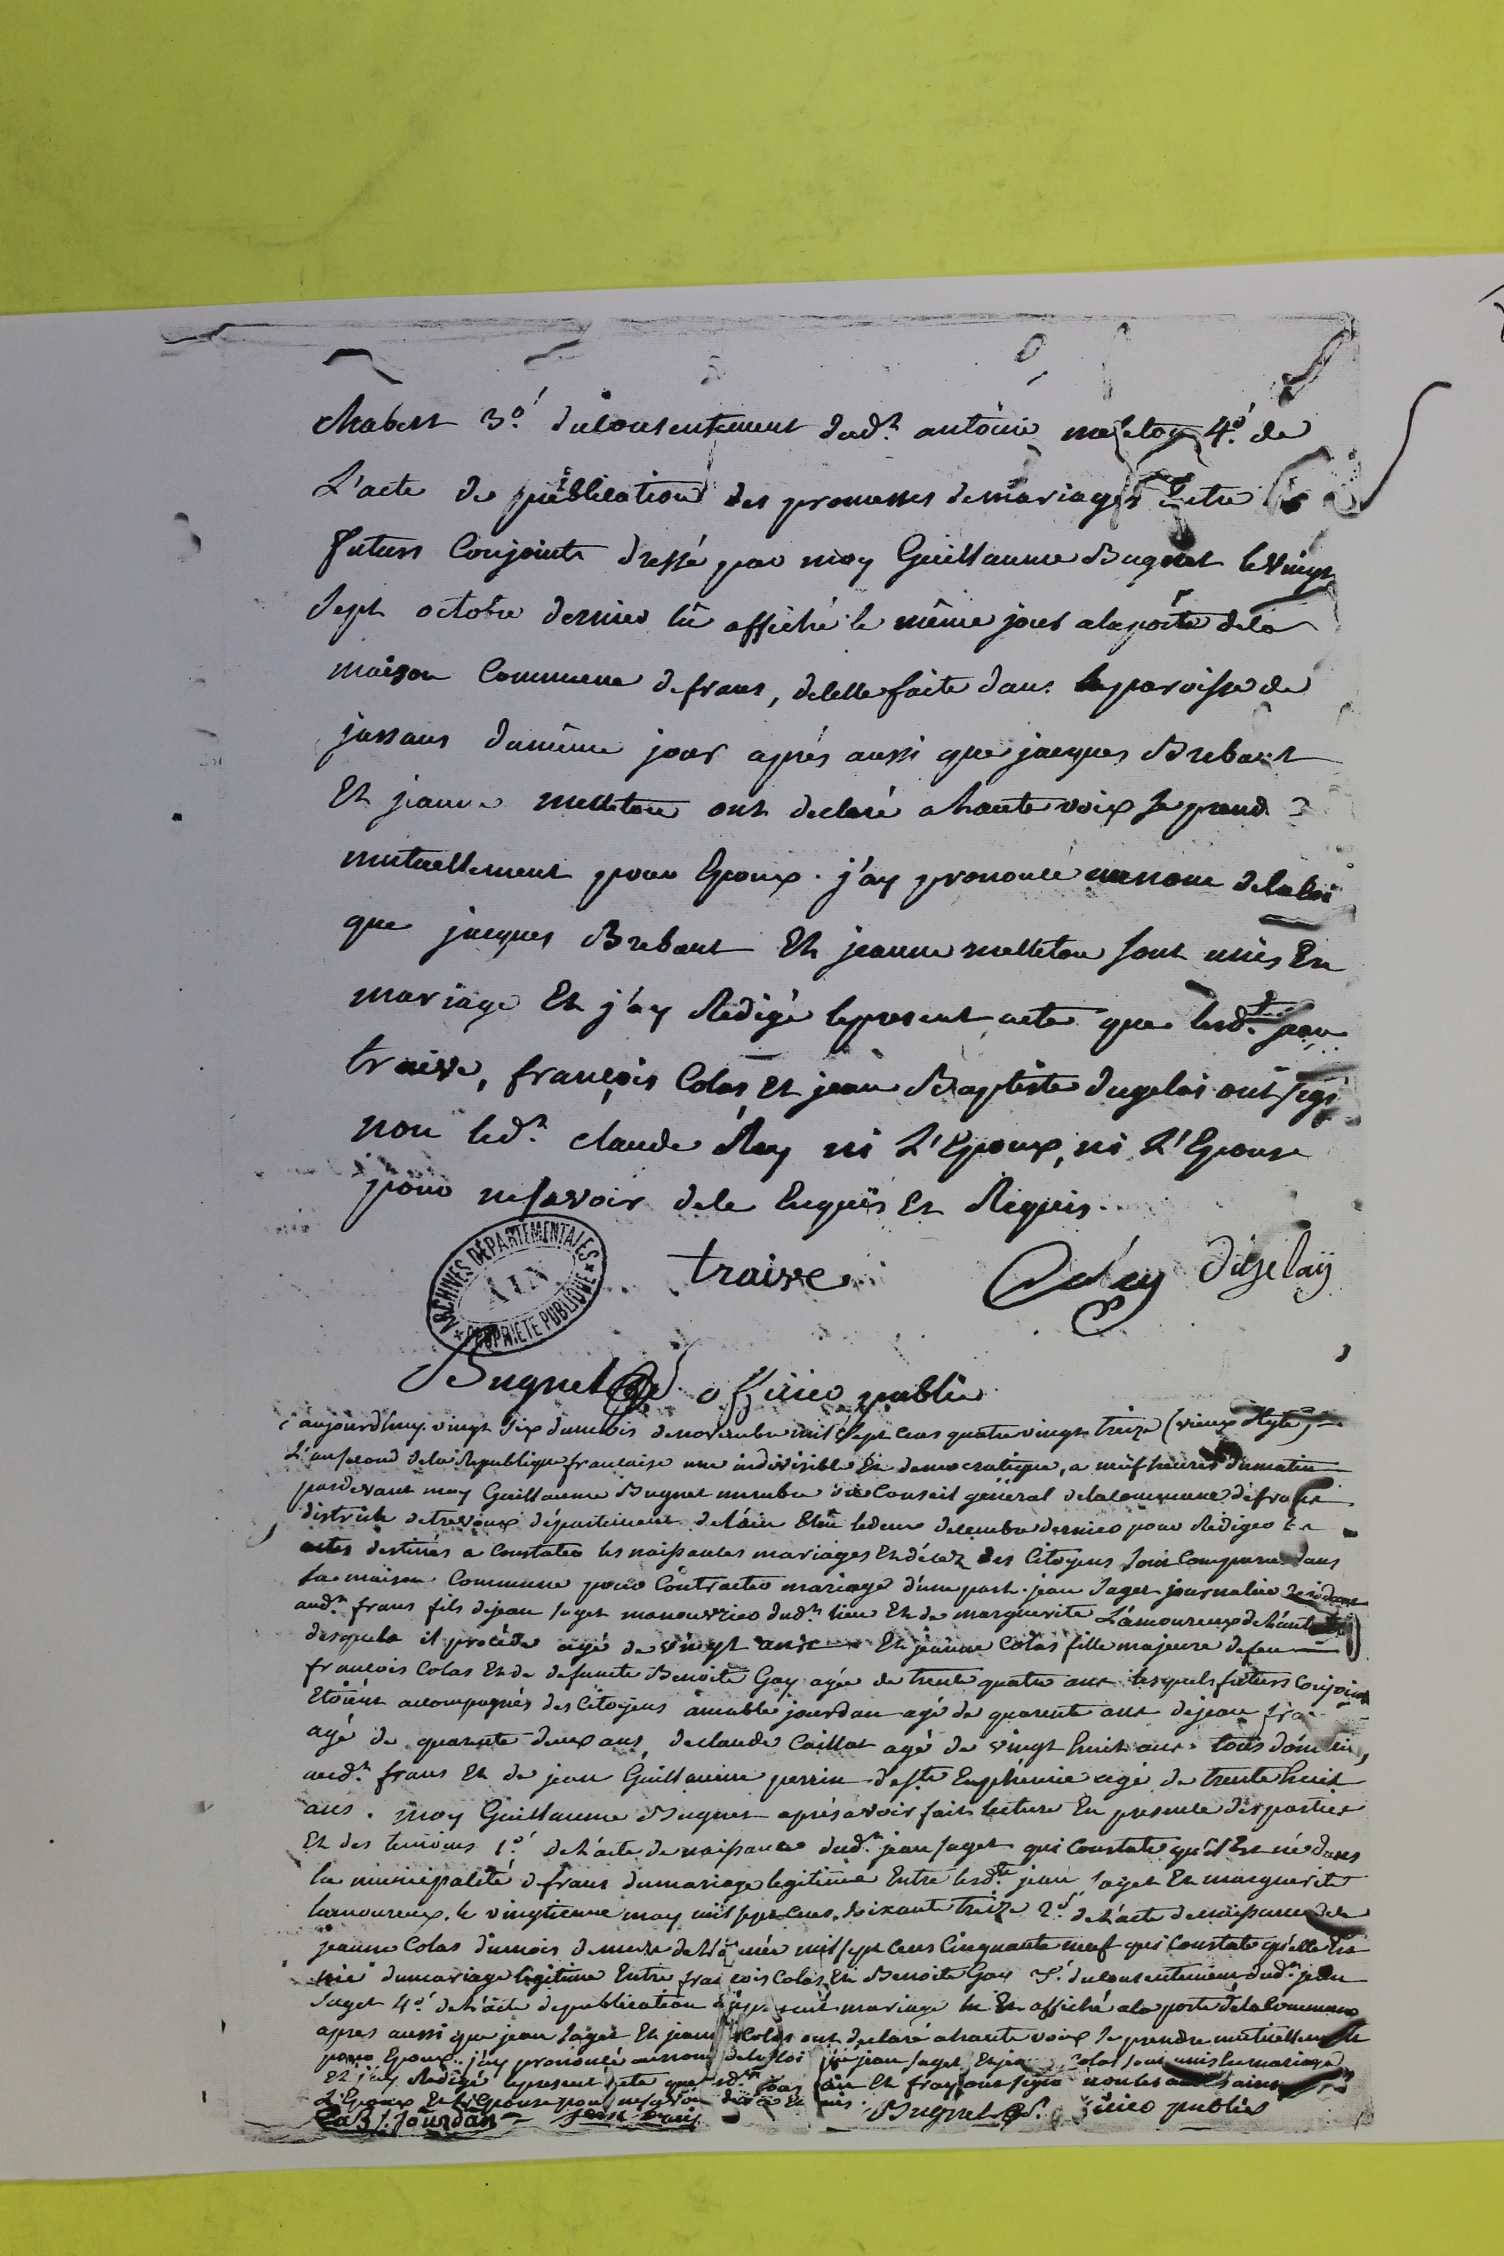 chabert 3.º du consentement dud.t antoine melleton 4.º de
L'acte de publication des promesses de mariages Entre
futurs Conjoints dressé par moy Guillaume Bugnet le vingt
sept octobre dernier lû affiché le même jour a la porte de la
maison Commune de frans, de celle faite dans la paroisse de
jassans du même jour après aussi que jacques Brebant
Et jeanne melleton ont declaré a haute voix se prend
mutuellement pour Epoux. j'ay prononcé au nom de la loi
que jacques Brebant Et jeanne melleton sont unis En
mariage Et j'ay Redigé le present acte que lesd.ts jean
traive, françois Colas et jean Baptiste dugelai ont sig
non led.t claude Rey ni L'Epoux, ni L'Epouse
pour ne savoir de le Enquis et Requis.
ARCHIVES DÉPARTEMENTALES
AIN
PROPRIETE PUBLIQUE
traive dugelaÿ
Bugnet officier public
aujourdhuy vingt six du mois de novembre mil sept cens quatre vingt treize (vieux style)
L'an second de la Republique francaise une indivisible Et democratique, a neuf heures du matin
pardevant moy Guillaume Bugnet membre du Conseil général de la commune de frans
district de trevoux département de l'ain Elû le deux decembre dernier pour Rédiger les
actes destinés a Constater les naissances mariages Et décez des Citoyens sont Comparu dans
la maison Commune pour Contracter mariage d'une part jean saget journalier Residant
aud.t frans fils de jean saget manouvrier dud.t lieu Et de marguerite L'amoureux de l'autorité
desquels il procéde agé de vingt ans Et jeanne Colas fille majeure de feu
françois Colas Et de defunte Benoite Gay agée de trente quatre ans lesquels futurs Conjoints
Etoient accompagnés des Citoyens aimable jourdan agé de quarente ans de jean
agé de quarente deux ans, de claude Caillat agé de vingt huit ans tous domicilié
aud.t frans Et de jean Guillaume perrin de ste Euphemie agé de trente huit
ans. moy Guillaume Bugnet après avoir fait lecture En presence des parties
Et des temoins 1.º de L'acte de naissance dud.t jean saget qui Constate qu'il Est né dans
la municipalité de frans du mariage legitime Entre lesd.ts jean saget Et marguerite
lamoureux, le vingtieme may mil sept cens soixante treize 2.º de L'acte de naissance de
jeanne Colas du mois de mars de l'année mil sept cens Cinquante neuf qui Constate qu'elle Est
née du mariage legitime Entre francois Colas Et Benoite Gay 3.º du consentement dud.t jean
Saget 4.º de L'acte de publication du present mariage lu Et affiché a la porte de la Commune
apres aussi que jean Saget Et jeanne Colas ont declaré a haute voix se prendre mutuellement
pour Epoux. j'ay prononcé au nom de la loi que jean saget Et jeanne Colas sont unis En mariage
Et j'ay Redigé le present acte que
L'Epoux Et L'Epouse pour ne savoir
jourdan Bugnet officier public